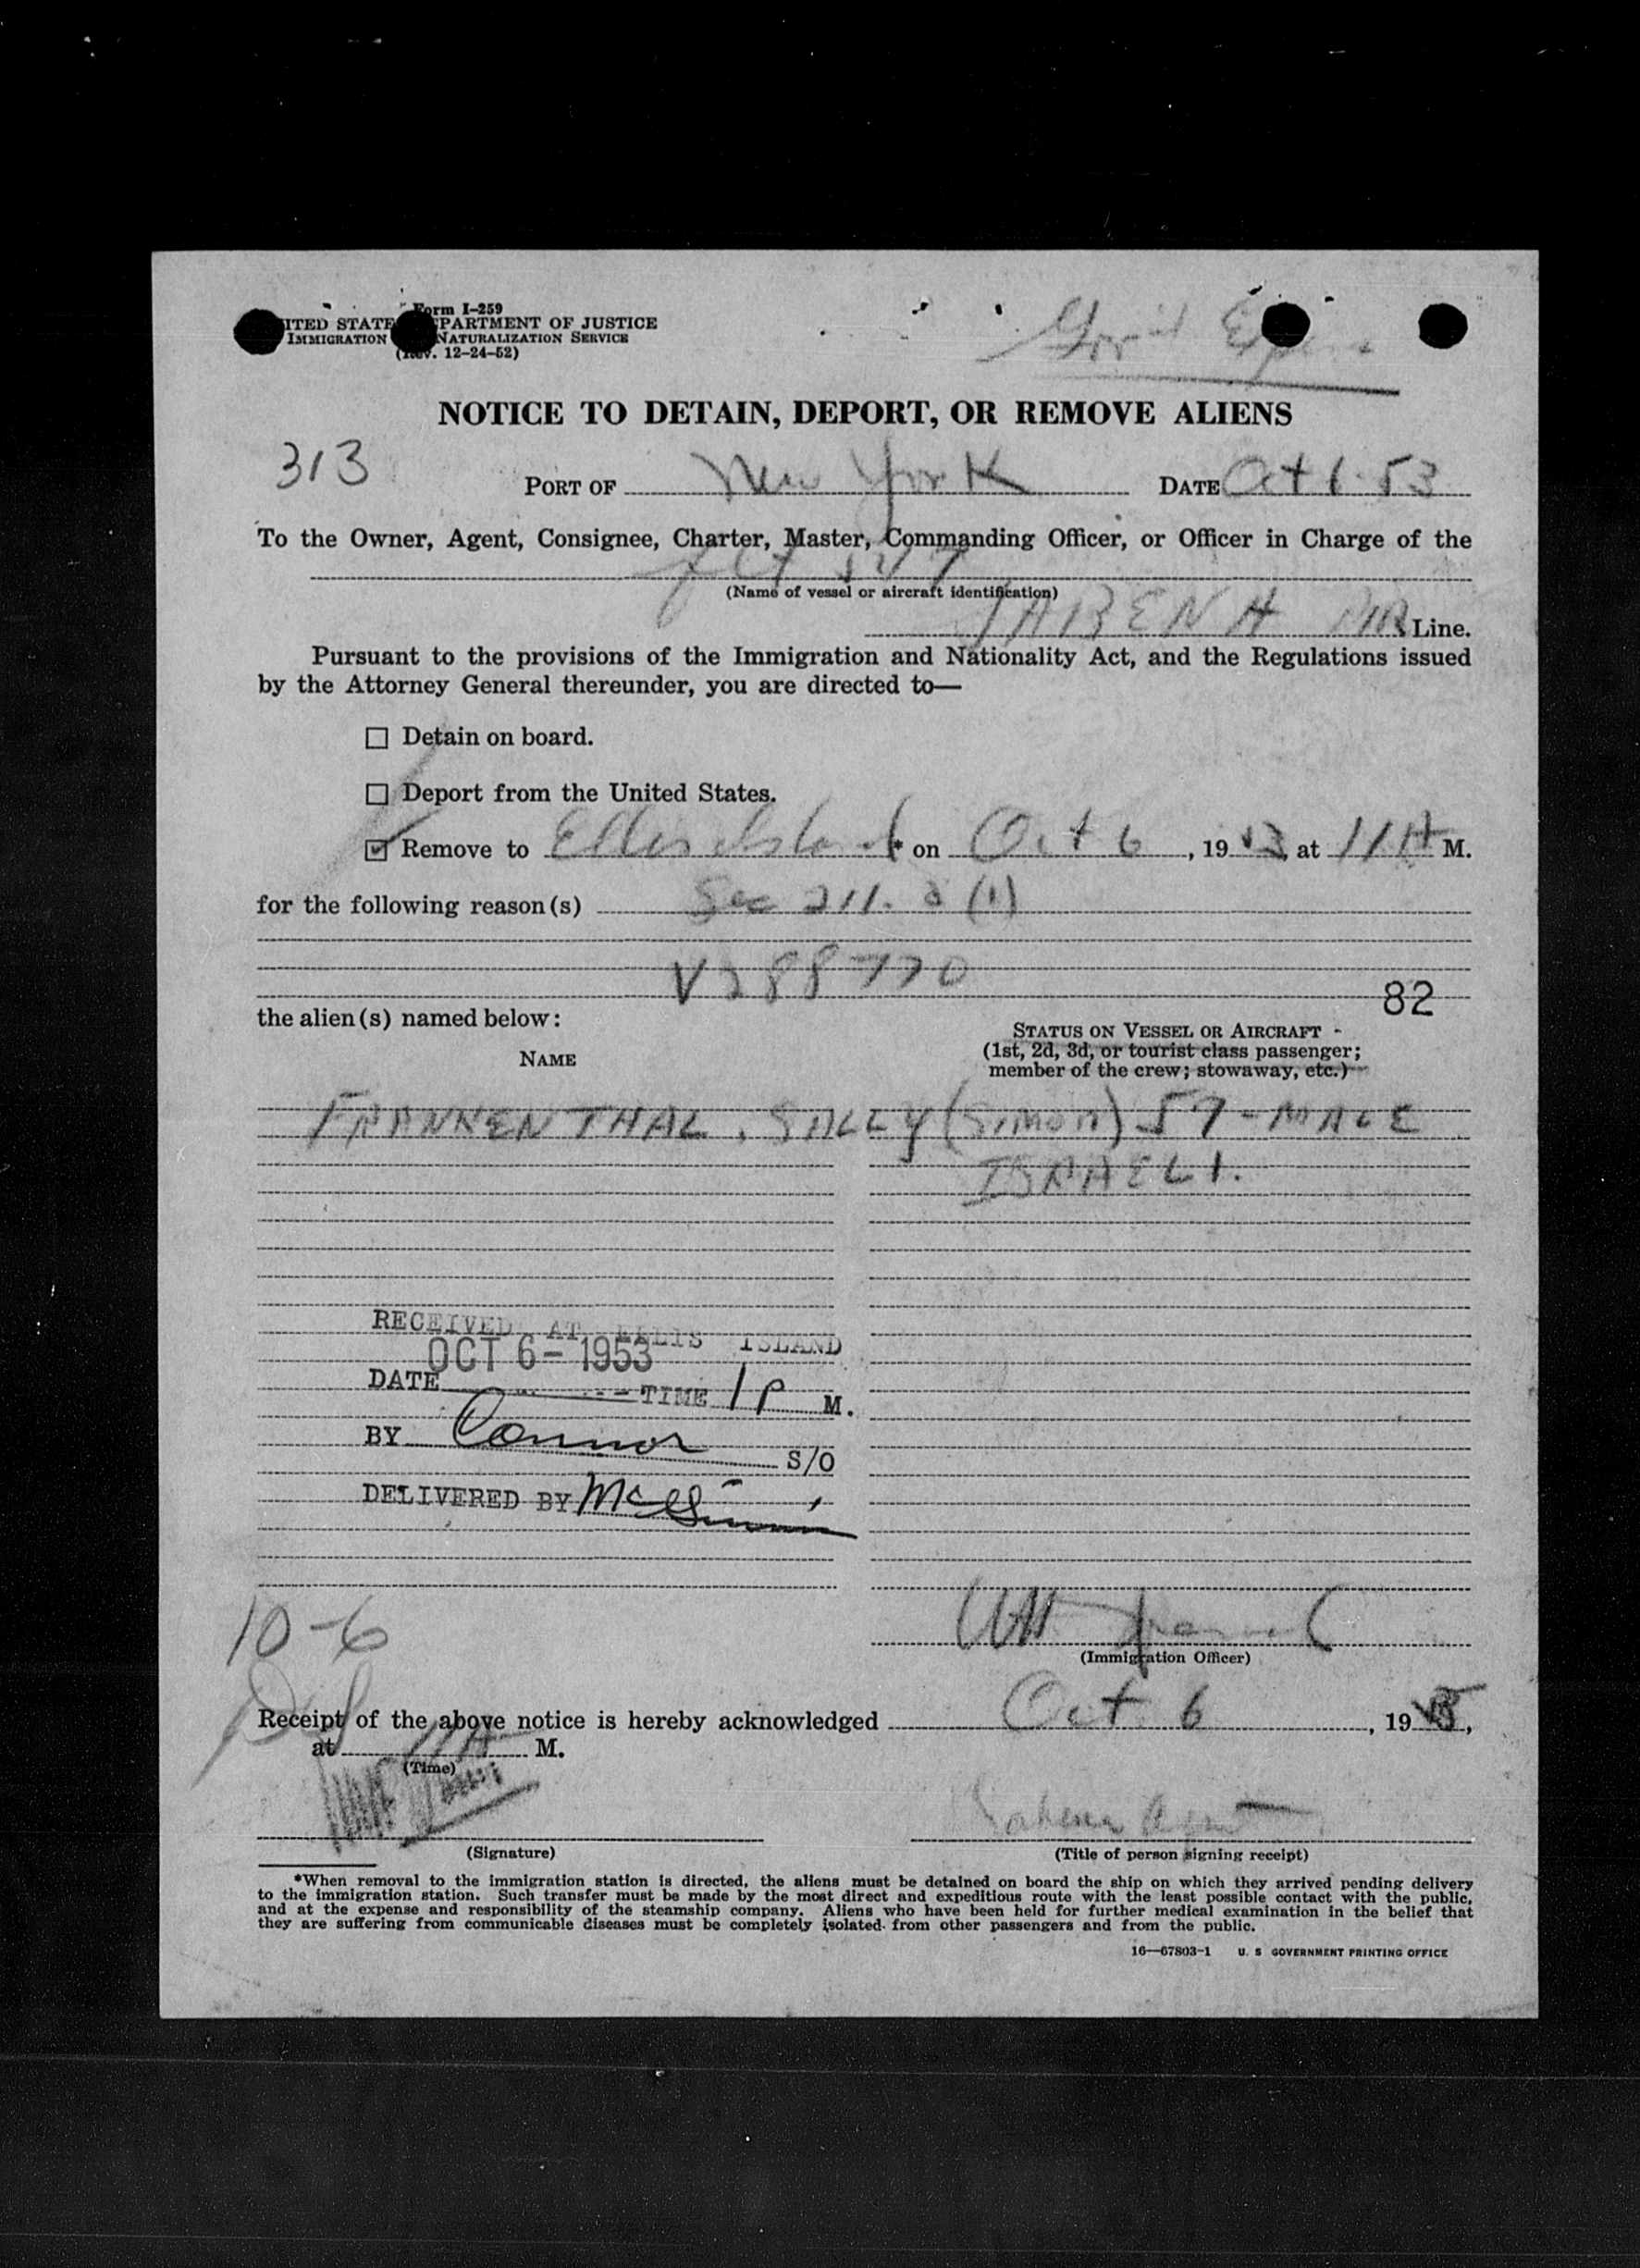 Form I-259
ITED STATE PARTMENT OF JUSTICE
IMMIGRATION NATURALIZATION SERVICE
(Rev. 12-24-52)
Gov't
NOTICE TO DETAIN, DEPORT, OR REMOVE ALIENS
313
PORT OF New York DATE Oct 6-53
To the Owner, Agent, Consignee, Charter, Master, Commanding Officer, or Officer in Charge of the
547
(Name of vessel or aircraft identification)
SABENA AIR Line.
Pursuant to the provisions of the Immigration and Nationality Act, and the Regulations issued
by the Attorney General thereunder, you are directed to—
☐ Detain on board.
☐ Deport from the United States.
☑ Remove to Ellis Island * on Oct 6, 1953, at 11 A M.
for the following reason(s) Sec 211. (1)
V288770
82
the alien(s) named below:
NAME
STATUS ON VESSEL OR AIRCRAFT -
(1st, 2d, 3d, or tourist class passenger;
member of the crew; stowaway, etc.)
FRANKENTHAL, SALLY (Simon) 57 - MALE
ISRAELI.
RECEIVED AT ELLIS ISLAND
OCT 6 - 1953
DATE TIME 1 P M.
BY Connor S/O
DELIVERED BY
10-6
(Immigration Officer)
Receipt of the above notice is hereby acknowledged Oct 6, 19
at 11 A M.
(Time)
Sabena Agent
(Signature)
(Title of person signing receipt)
*When removal to the immigration station is directed, the aliens must be detained on board the ship on which they arrived pending delivery
to the immigration station. Such transfer must be made by the most direct and expeditious route with the least possible contact with the public,
and at the expense and responsibility of the steamship company. Aliens who have been held for further medical examination in the belief that
they are suffering from communicable diseases must be completely isolated from other passengers and from the public.
16—67803-1 U. S GOVERNMENT PRINTING OFFICE